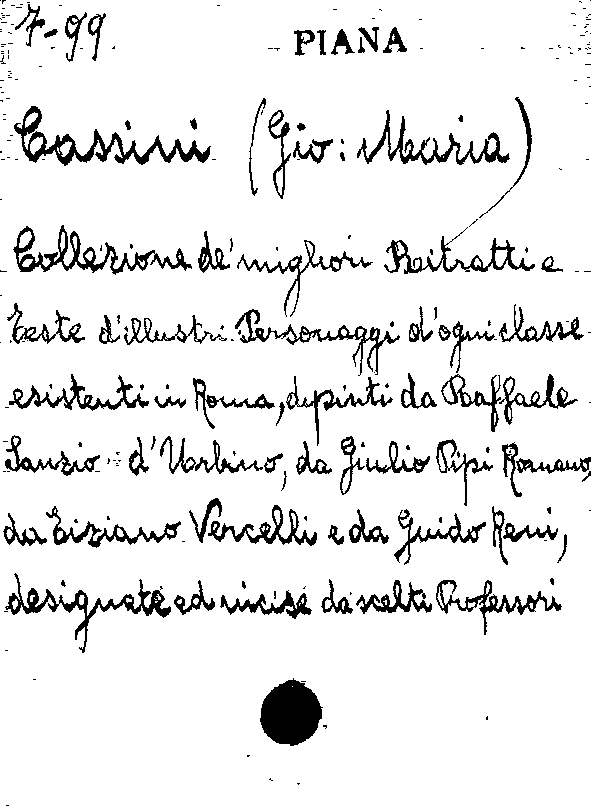 7-99 PIANA
Cassini (Gio: Maria)
Collezione de' migliori Ritratti e
Teste d'illustri Personaggi d'ogni classe
esistenti in Roma, dipinti da Raffaele
Sanzio d'Urbino, da Giulio Pipi Romano,
da Tiziano Vercelli e da Guido Reni,
designate ed incise da scelti Professori